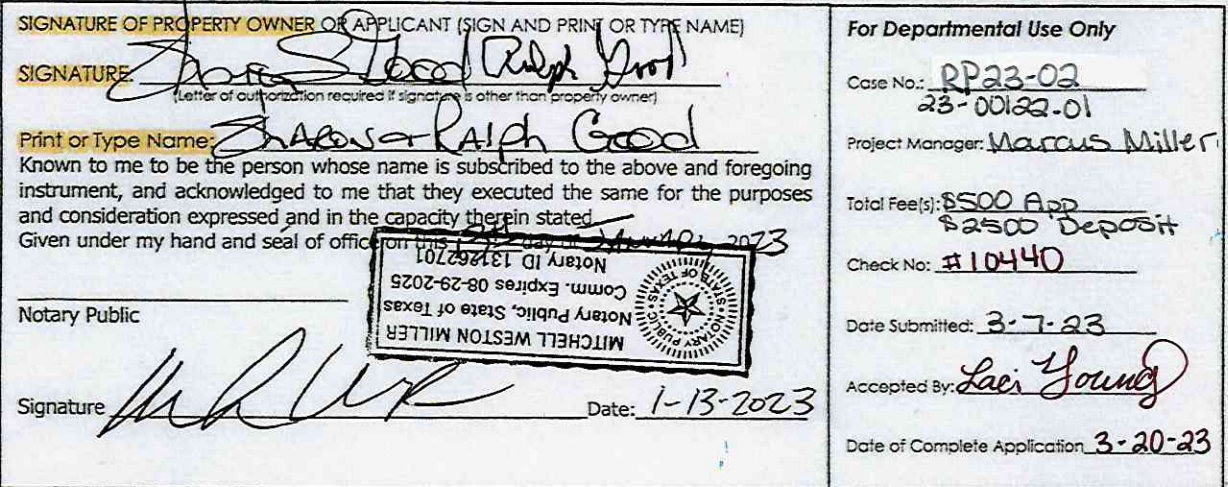 SIGNATURE OF PROPERTY OWNER OR APPLICANT (SIGN AND PRINT OR TYPE NAME)
SIGNATURE: Good Ralph Good
(Letter of authorization required if signature is other than property owner)
Print or Type Name: Sharon & Ralph Good
Known to me to be the person whose name is subscribed to the above and foregoing
instrument, and acknowledged to me that they executed the same for the purposes
and consideration expressed and in the capacity therein stated.
Given under my hand and seal of office on this day of January, 2023
MITCHELL WESTON MILLER
Notary Public, State of Texas
Comm. Expires 08-29-2025
Notary ID 131262701
NOTARY PUBLIC
STATE OF TEXAS
Notary Public
Signature
Date: 1-13-2023
For Departmental Use Only
Case No.: RP23-02
23-00122-01
Project Manager: Marcus Miller
Total Fee(s): $500 App
$2500 Deposit
Check No: #10440
Date Submitted: 3-7-23
Accepted By: Laci Young
Date of Complete Application 3-20-23